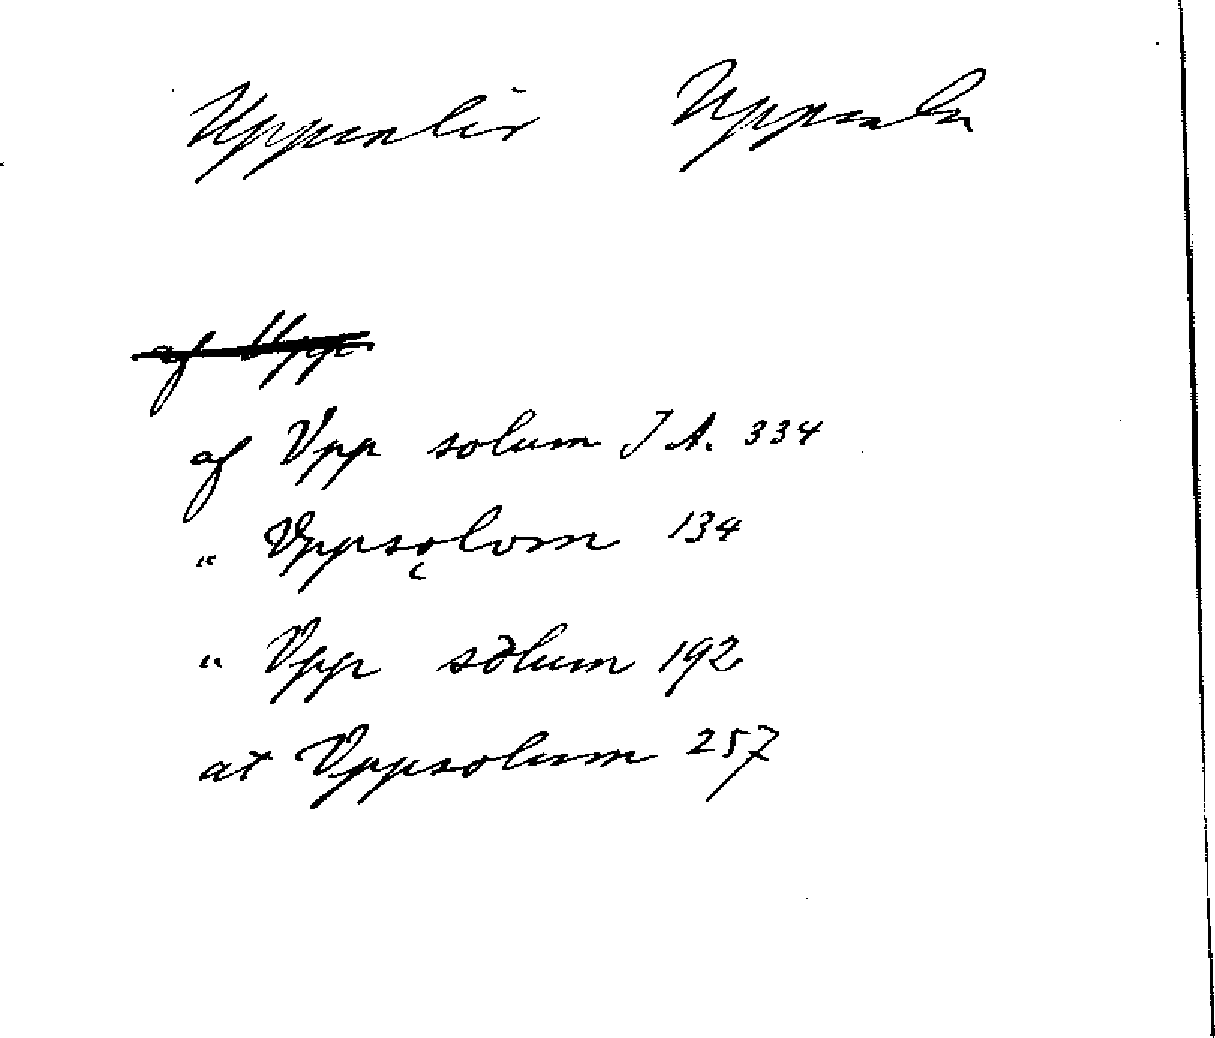 Uppsalir Uppsala
af Upp
af Vpp solum I A. 334
" Vppsǫlom 134
" Vpp sòlum 192
at Vppsolum 257